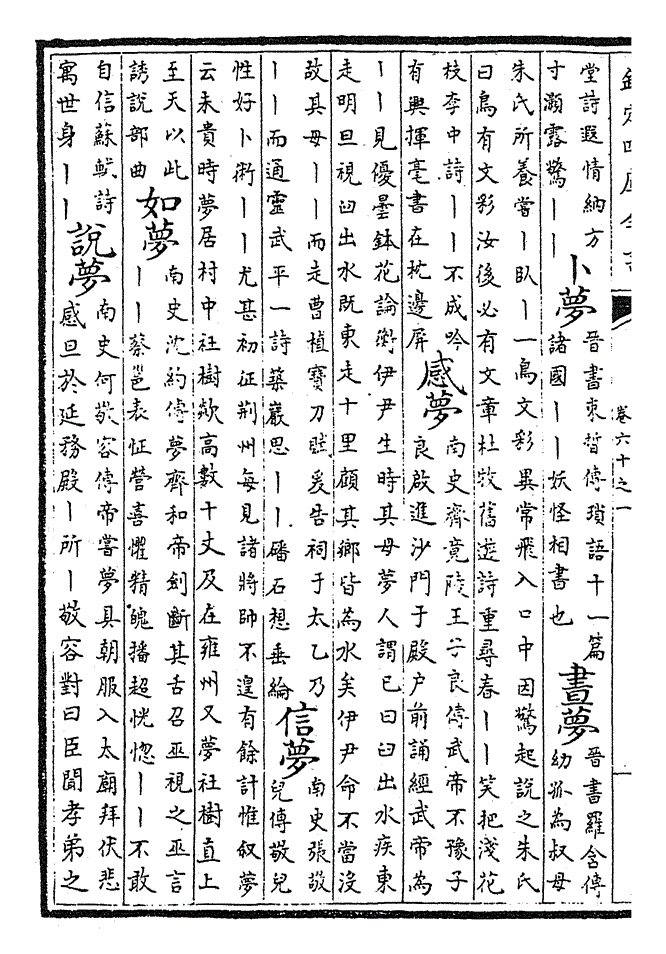 欽定四庫全書
卷六十之一
堂詩遐情納方
寸灝露驚丨丨
卜夢
晉書束晳傳瑣語十一篇
諸國丨丨妖怪相書也
晝夢
晉書羅含傳
幼孤為叔母
朱氏所養嘗丨臥丨一鳥文彩異常飛入口中因驚起說之朱氏
曰鳥有文彩汝後必有文章杜牧舊遊詩重尋春丨丨笑把淺花
枝李中詩丨丨不成吟
有興揮毫書在枕邊屏
感夢
南史齊竟陵王子良傳武帝不豫子
良啟進沙門于殿户前誦經武帝為
丨丨見優曇鉢花論衡伊尹生時其母夢人謂已曰臼出水疾東
走明旦視臼出水既東走十里顧其鄉皆為水矣伊尹命不當沒
故其母丨丨而走曹植寶刀賦爰告祠于太乙乃
丨丨而通靈武平一詩築巖思丨丨磻石想垂綸
信夢
南史張敬
兒傳敬兒
性好卜術丨丨尤甚初征荆州每見諸將帥不遑有餘計惟叙夢
云未貴時夢居村中社樹欻高數十丈及在雍州又夢社樹直上
至天以此
誘說部曲
如夢
南史沈約傳夢齊和帝劍斷其舌召巫視之巫言
丨丨蔡邕表怔營喜懼精魄播超恍惚丨丨不敢
自信蘇軾詩
寓世身丨丨
說夢
南史何敬容傳帝嘗夢具朝服入太廟拜伏悲
感旦於延務殿丨所丨敬容對曰臣聞孝弟之